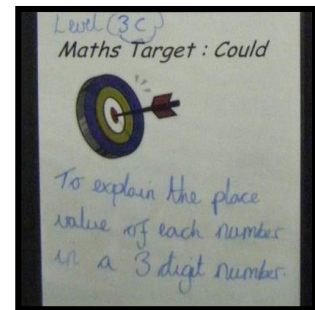 Level (3C)
Maths Target : Could
To explain the place
value of each number
in a 3 digit number.